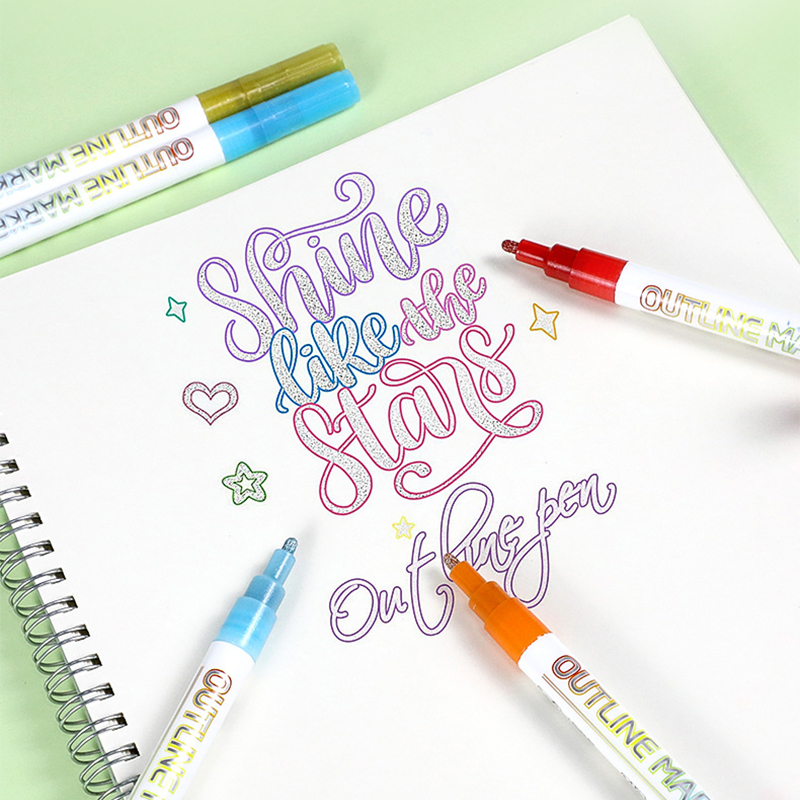 OUTLINE MARKE
OUTLINE MARKE
Shine
like the
Stars
OUTLINE MA
Outline pen
OUTLINE
OUTLINE MAR